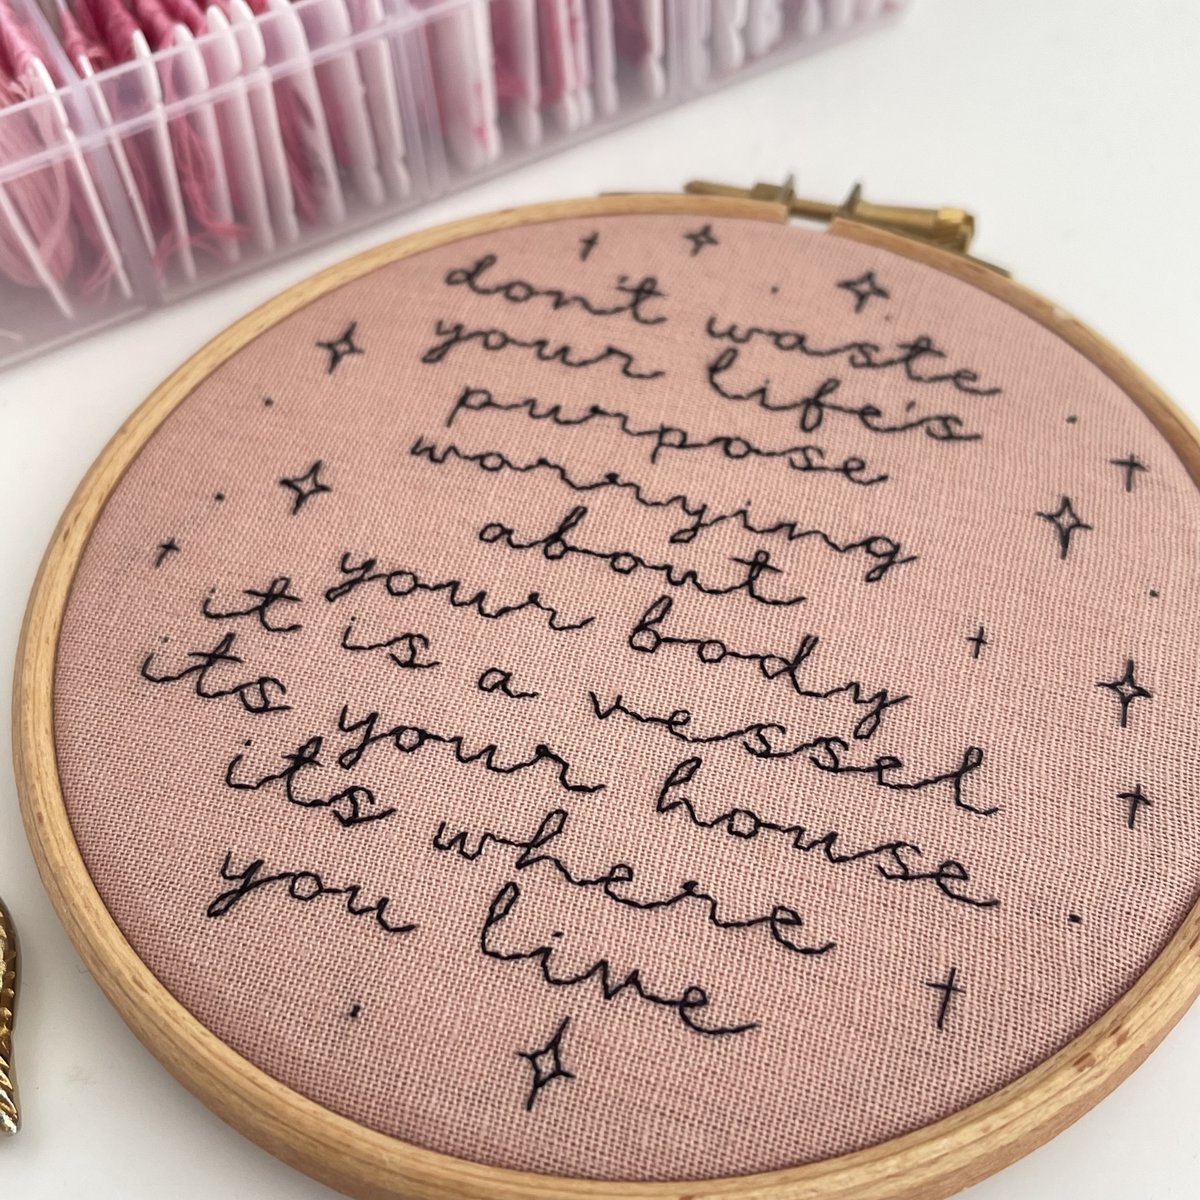 don't waste
your life's
purpose
worrying
about
your body
it is a vessel
its your house
its where
you live